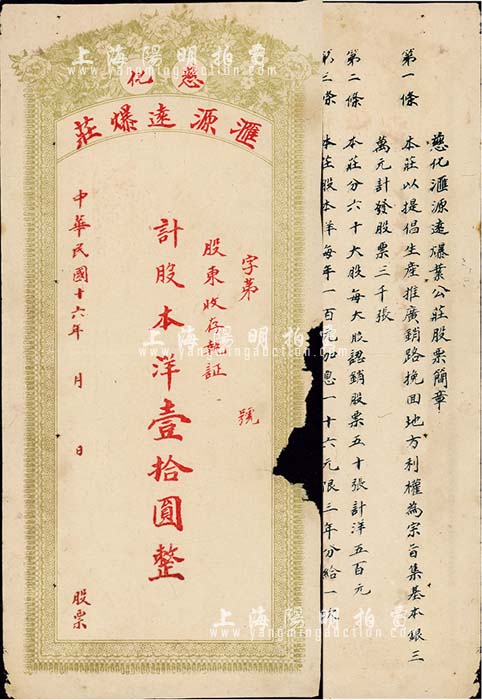 慈化滙源遠爆業公莊股票簡章
第一條 本莊以提倡生產推廣銷路挽囬地方利權為宗旨集基本銀三
萬元計發股票三千張
第二條 本莊分六十大股每大股認銷股票五十張計洋五百元
第三條 本莊股本洋每年一百元加息一十六元限三年分給一次
慈化
滙源遠爆莊
字第 號
股東收存執証
計股本洋壹拾圓整
中華民國十六年 月 日
股票
上海陽明拍賣
www.yangmingauction.com
上海陽明拍賣
www.yangmingauction.com
上海陽明拍賣
www.yangmingauction.com